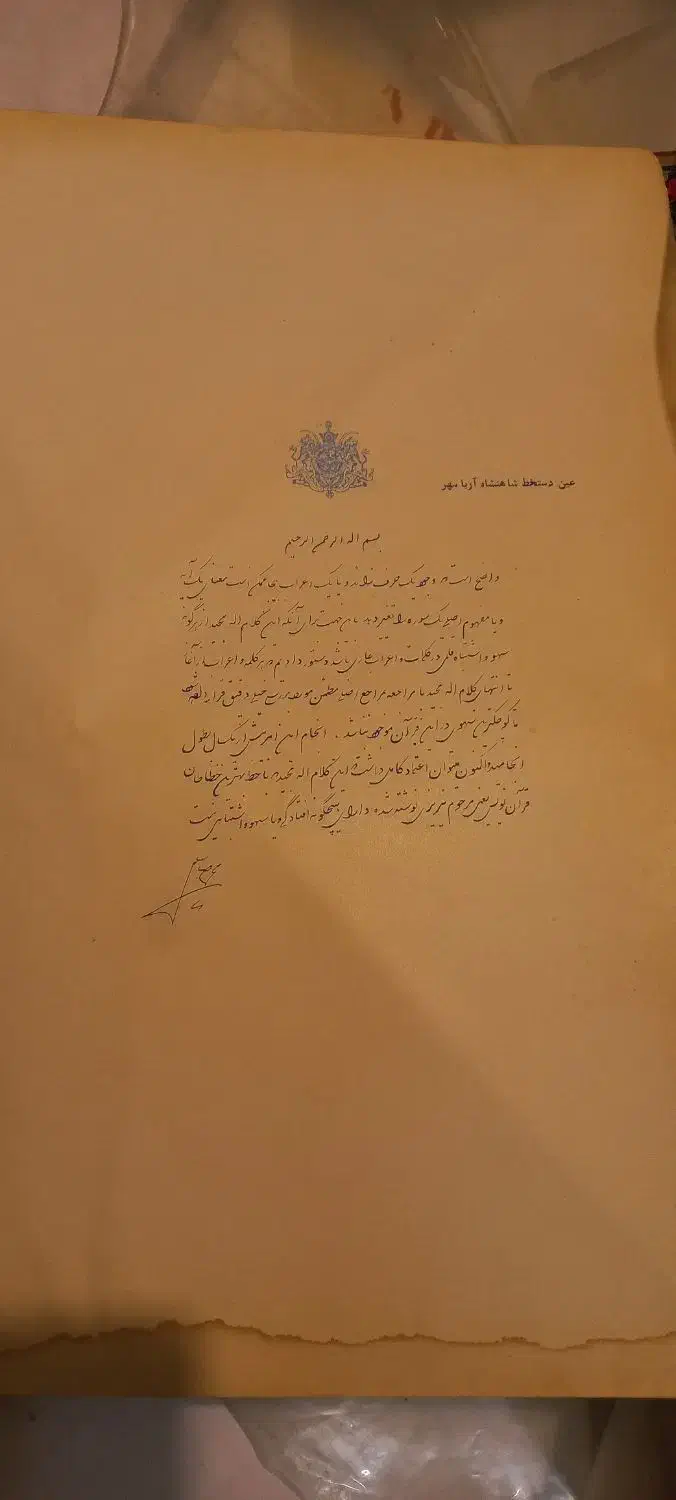 عین دستخط شاهنشاه آریا مهر
بسم اله الرحمن الرحیم
واضح است که وجود یک حرف زائد و یا یک اعراب بیجا ممکن است معنای یک آیه
و یا مفهوم اصلی یک سوره را تغییر دهد بدین جهت برای آنکه این کلام اله مجید از هرگونه
سهو و اشتباه قلمی در کلمات و اعراب عاری باشد دستور دادیم که هر کلمه و اعراب از آغاز
تا انتهای کلام اله مجید با مراجعه به مراجع اصلی و مطمئن مورد بررسی خیلی دقیق قرار داده شود
تا کوچکترین سهوی در این قرآن موجود نباشد. انجام این امر بیش از یک سال بطول
انجامید و اکنون میتوان اعتماد کامل داشت که این کلام اله مجید که با خط بهترین خطاطان
قرآن نویس یعنی مرحوم تبریزی نوشته شده دارای هیچگونه افتادگی و یا سهو و اشتباهی نیست